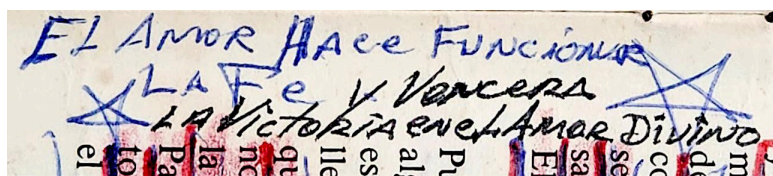 EL AMOR HACE FUNCIONAR
LA FE Y VENCERA
LA VICTORIA EN EL AMOR DIVINO